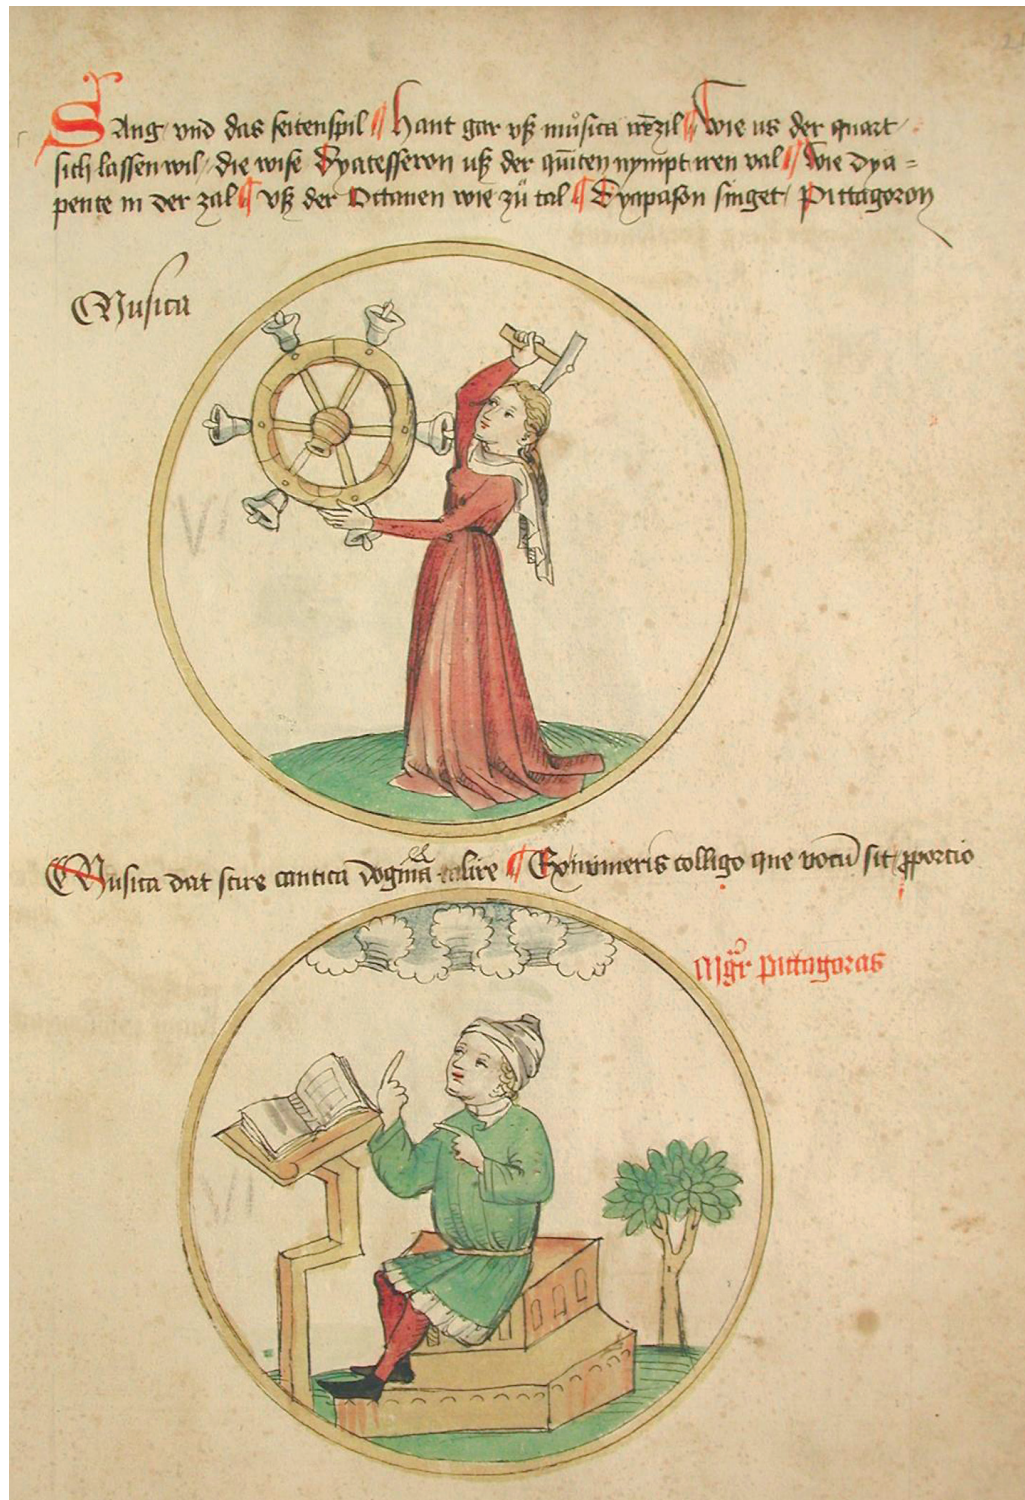 SAng und das seitenspil ¶ Hant gar uß musica zil ¶ Wie us der quart
sich lassen wil / die wise Dyatesseron uß der quinten nympt iren val ¶ Wie dya=
pente in der zal ¶ uß der Octauen wie zů tal ¶ Dyapason singet / Pittagoron
Musica
Musica dat scire cantica dogma ¶ Ex numeris colligo que vocū sit proporcio
Mgr pittagoras
VI
VI